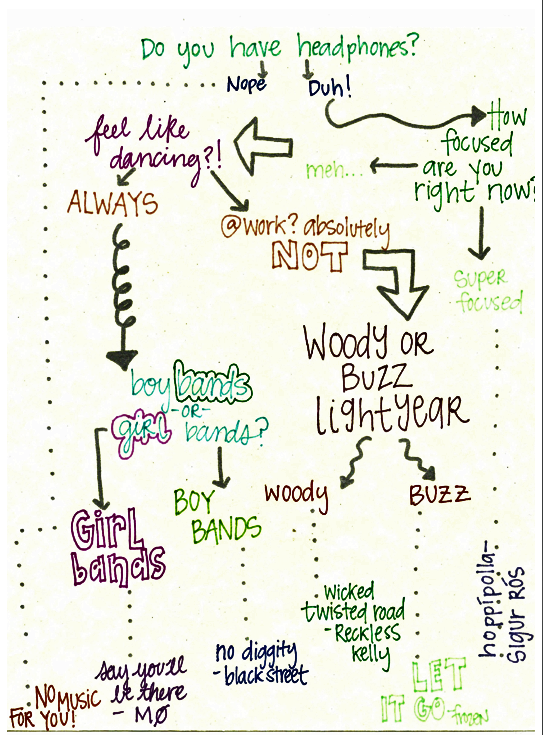 Do you have headphones?
Nope
Duh!
How
focused
are you
right now?
meh...
feel like
dancing?!
ALWAYS
@work? absolutely
NOT
super
focused
Woody OR
BUZZ
lightyear
boy bands
-OR-
girl bands?
Woody
BUZZ
BOY
BANDS
Girl
bands
hoppípolla-
Sigur Rós
wicked
twisted road
-Reckless
kelly
no diggity
-blackstreet
say you'll
be there
- MØ
LET
IT GO -frozen
NO MUSIC
FOR YOU!